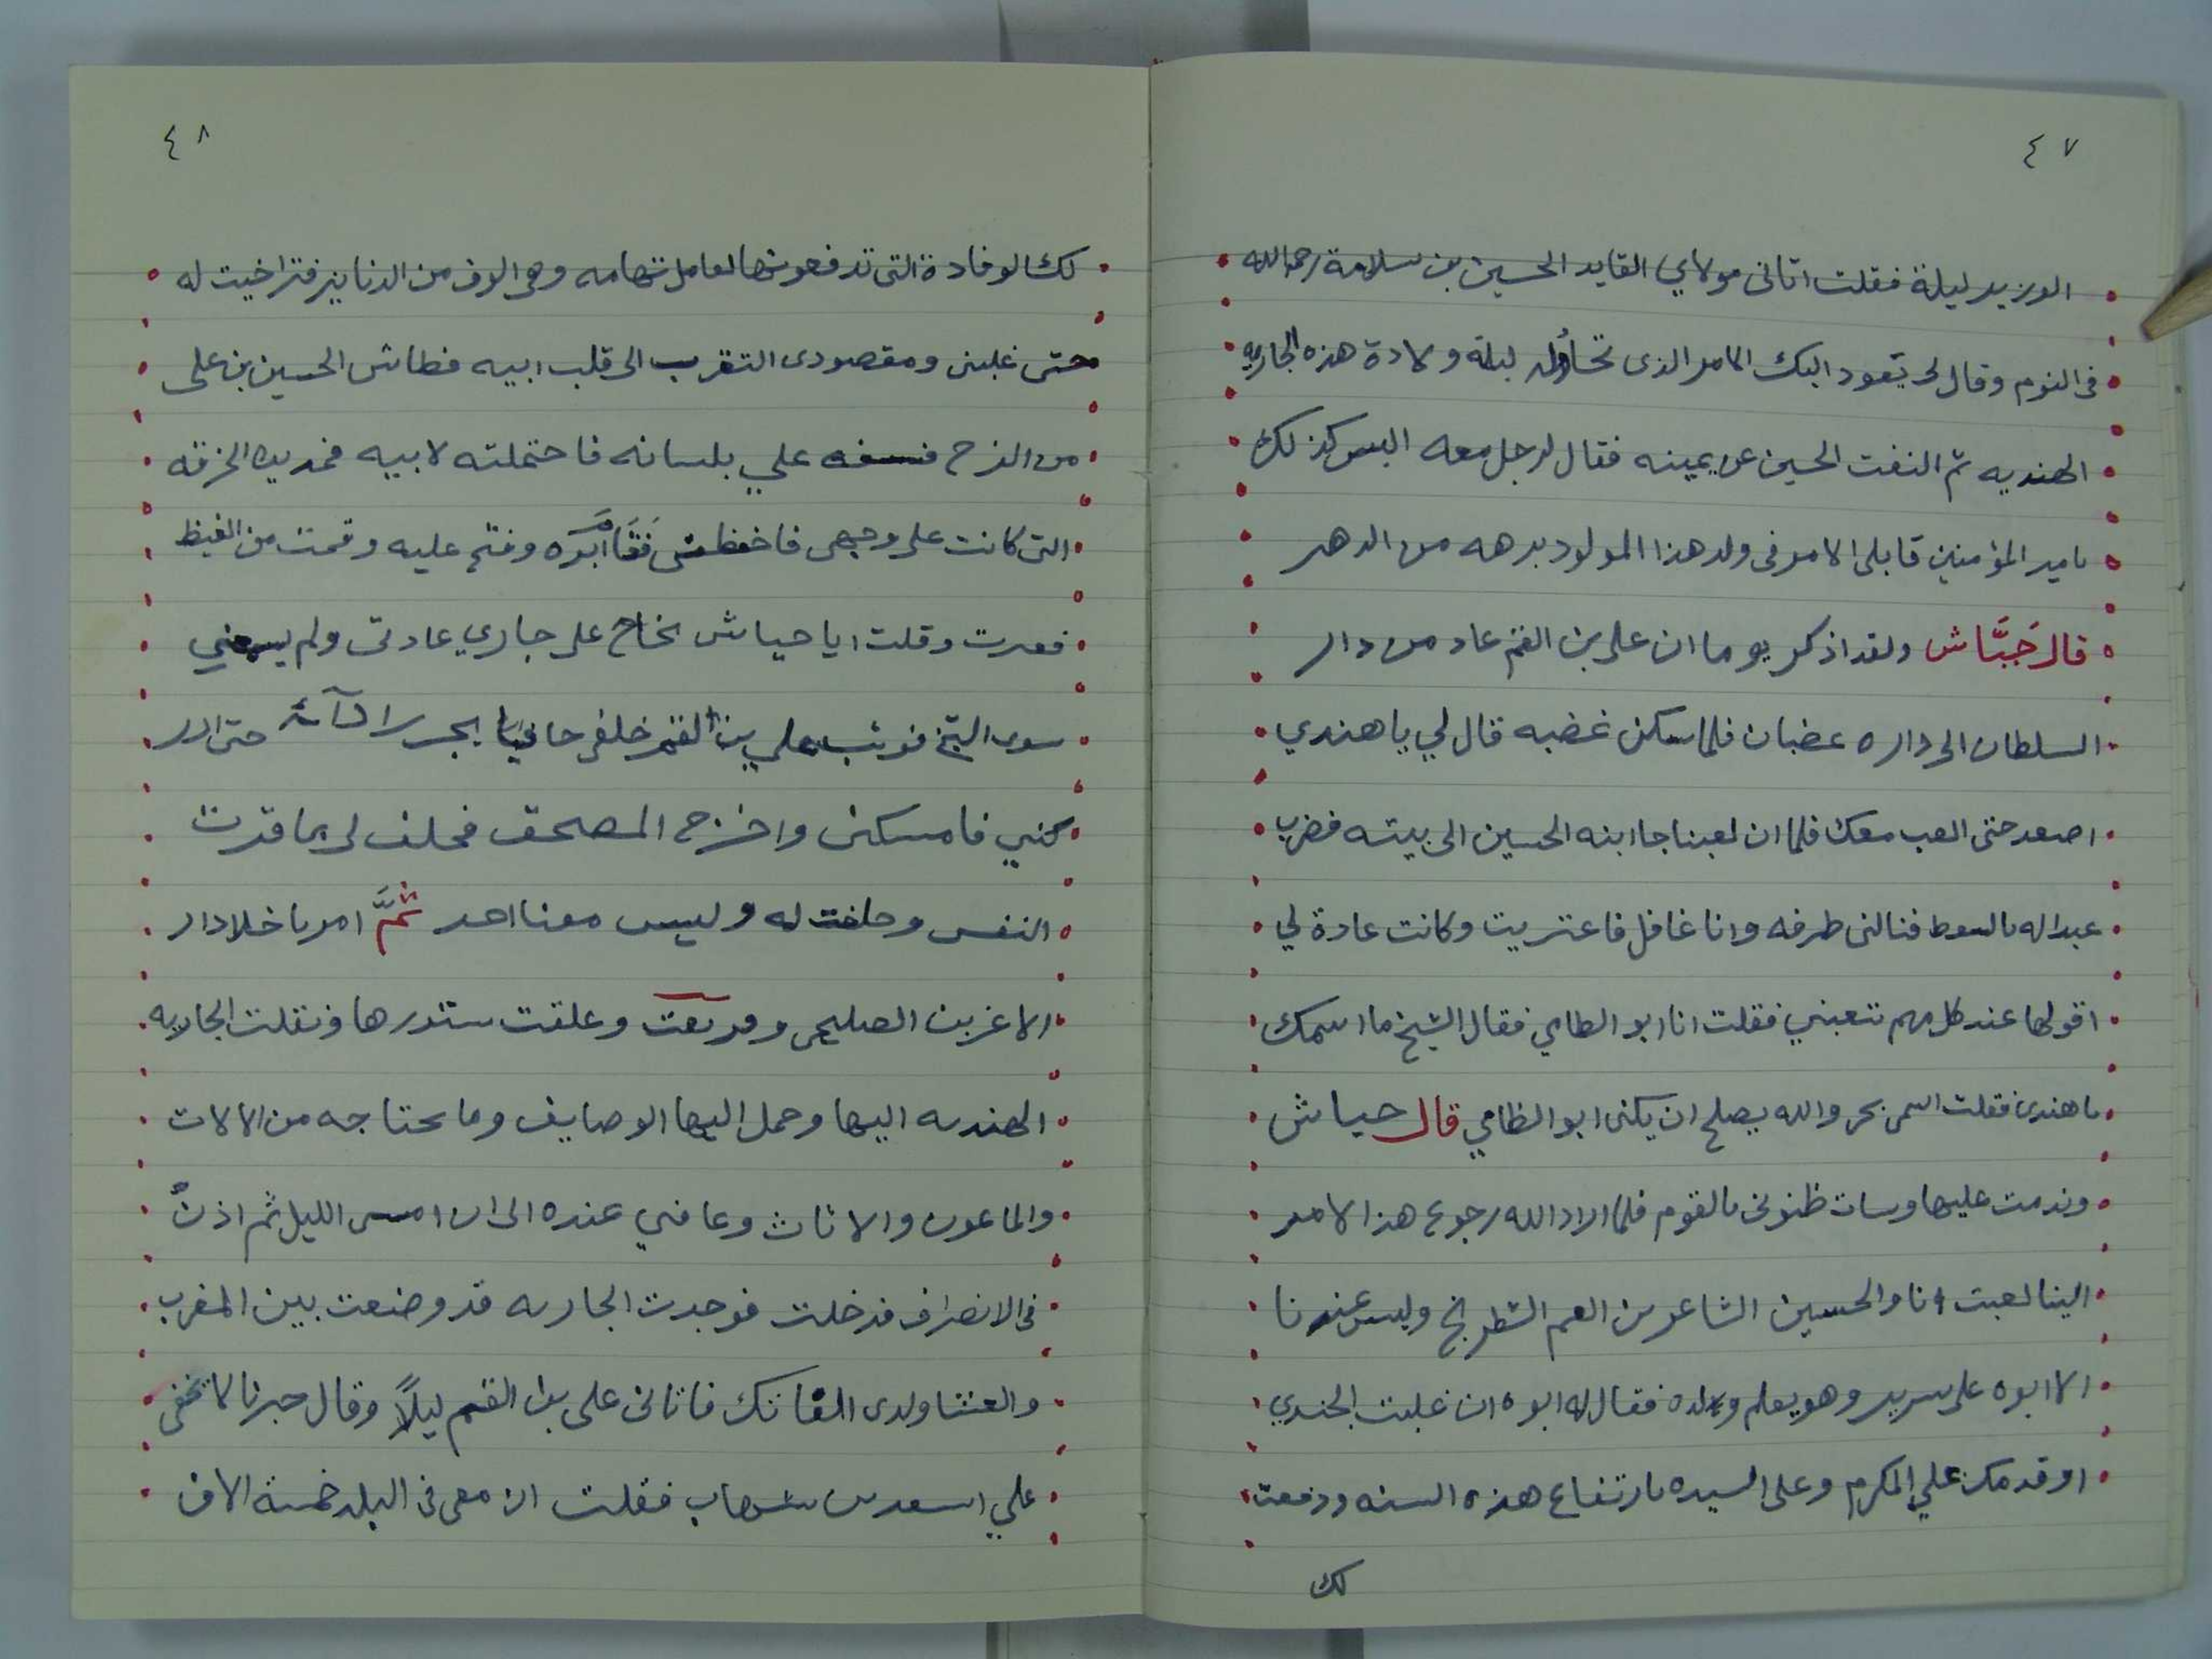 ٤٧
الوزير ليلة فقلت اتاني مولاي القايد الحسين بن سلامة رحمه الله
في النوم وقال لي يعود اليك الامر الذي تحاوله ليلة ولادة هذه الجاريه
الهنديه ثم التفت الحسين عن يمينه فقال لرجل معه اليس كذلك
يامير المؤمنين قال بلى الامر في ولد هذا المولود برهه من الدهر
قال جَيَّاش ولقد اذكر يوما ان علي بن القم عاد من دار
السلطان الى داره عضبان فلما سكن غضبه قال لي يا هندي
اصعد حتى العب معك فلما ان لعبنا جا ابنه الحسين الى بيته فضرب
عبدا له بالسوط فنالني طرفه وانا غافل فاعتريت وكانت عادة لي
اقولها عند كل مهم تتعبني فقلت انا ابو الطامي فقال الشيخ ما اسمك
يا هندي فقلت اسمي بحر والله يصلح ان يكنى ابو الظامي قال حياش
وندمت عليها وسات ظنوني بالقوم فلما اراد الله رجوع هذا الامر
الينا لعبت انا والحسين الشاعر بن القم الشطرنج وليس عندنا
الا ابوه على سرير وهو يعلم ولده فقال له ابوه ان غلبت الهندي
اوفدتك علي المكرم وعلى السيده بارتفاع هذه السنه ودفعت
لك
٤٨
لك الوفادة التي تدفعونها لعامل تهامه وهي الوف من الدنانير فتراخيت له
حتى غلبني ومقصودي التقرب الى قلب ابيه فطاش الحسين بن علي
من الفرح فسفه علي بلسانه فاحتملته لابيه فمد يده الخرقه
التي كانت على وجهي فاحفظني فقام ابوه وفتح عليه وقمت من الغيظ
فعثرت وقلت ايا حياش بخاح على جاري عادتي ولم يسمعني
سوى الشيخ فوثب علي بن القم خلفي حافيا يجر رداءه حتى ادر
كني فامسكني واخرج المصحف فحلف لي بما قرت
النفس وحلفت له وليس معنا احد ثُمَّ امر باخلا دار
الاغر بن الصليحي وفرشت وعلقت ستورها ونقلت الجاريه
الهنديه اليها وحمل اليها الوصايف وما يحتاجه من الالات
والماعون والاثاث وعافني عنده الى ان امسى الليل ثم اذن
في الانصراف فدخلت فوجدت الجاريه قد وضعت بين المغرب
والعشا ولدي الفاتك فاتاني علي بن القم ليلًا وقال خبرنا لا تخفى
علي اسعد بن شهاب فقلت ان معي في البلد خمسة الاف